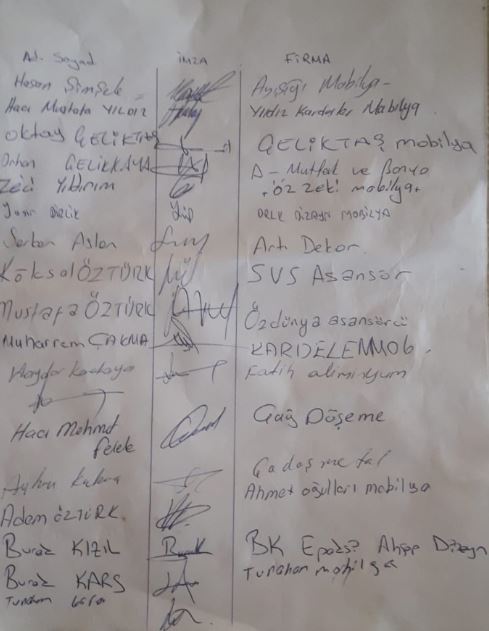 Ad. Soyad İMZA FİRMA
Hasan Şimşek Ayışığı Mobilya
Hacı Mustafa YILDIZ Yıldız Kardeşler Mobilya
Oktay ÇELİKTAŞ ÇELİKTAŞ mobilya
Orhan ÇELİKKAYA A- Mutfak ve Banyo
Zeki Yıldırım öz zeki mobilya
DİZAYN MOBİLYA
Serkan Aslan Artı Dekor
Köksal ÖZTÜRK SVS Asansör
Mustafa ÖZTÜRK Özdünya asansörcü
Muharrem ÇAKMA KARDELEN MOB.
Haydar Fatih alüminyum
Hacı Mehmet Çağ Döşeme
felek
Ayhan
Ahmet oğulları mobilya
Adem ÖZTÜRK
Burak KIZIL BK Ahşap Dizayn
Burak KARS Turahan mobilya
Turahan